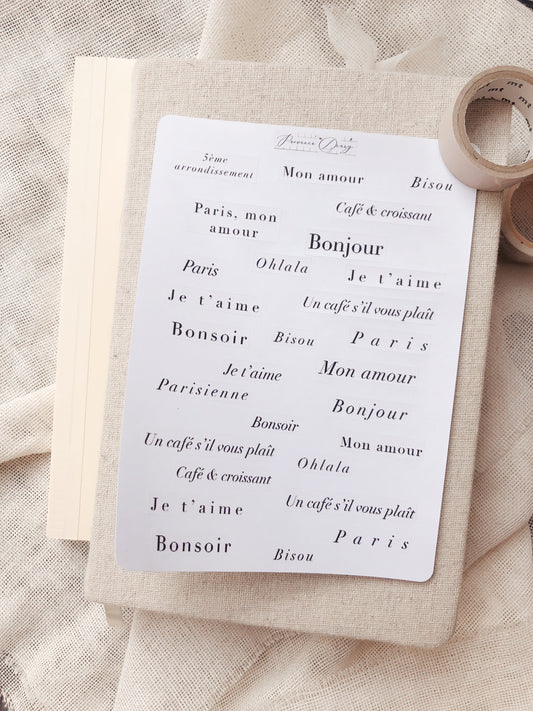 mt
5ème
arrondissement
Mon amour
Bisou
Café & croissant
Paris, mon
amour
Bonjour
Paris
Ohlala
Je t'aime
Je t'aime
Un café s'il vous plaît
Bonsoir
Bisou
Paris
Je t'aime
Mon amour
Parisienne
Bonjour
Bonsoir
Un café s'il vous plaît
Mon amour
Ohlala
Café & croissant
Je t'aime
Un café s'il vous plaît
Paris
Bonsoir
Bisou